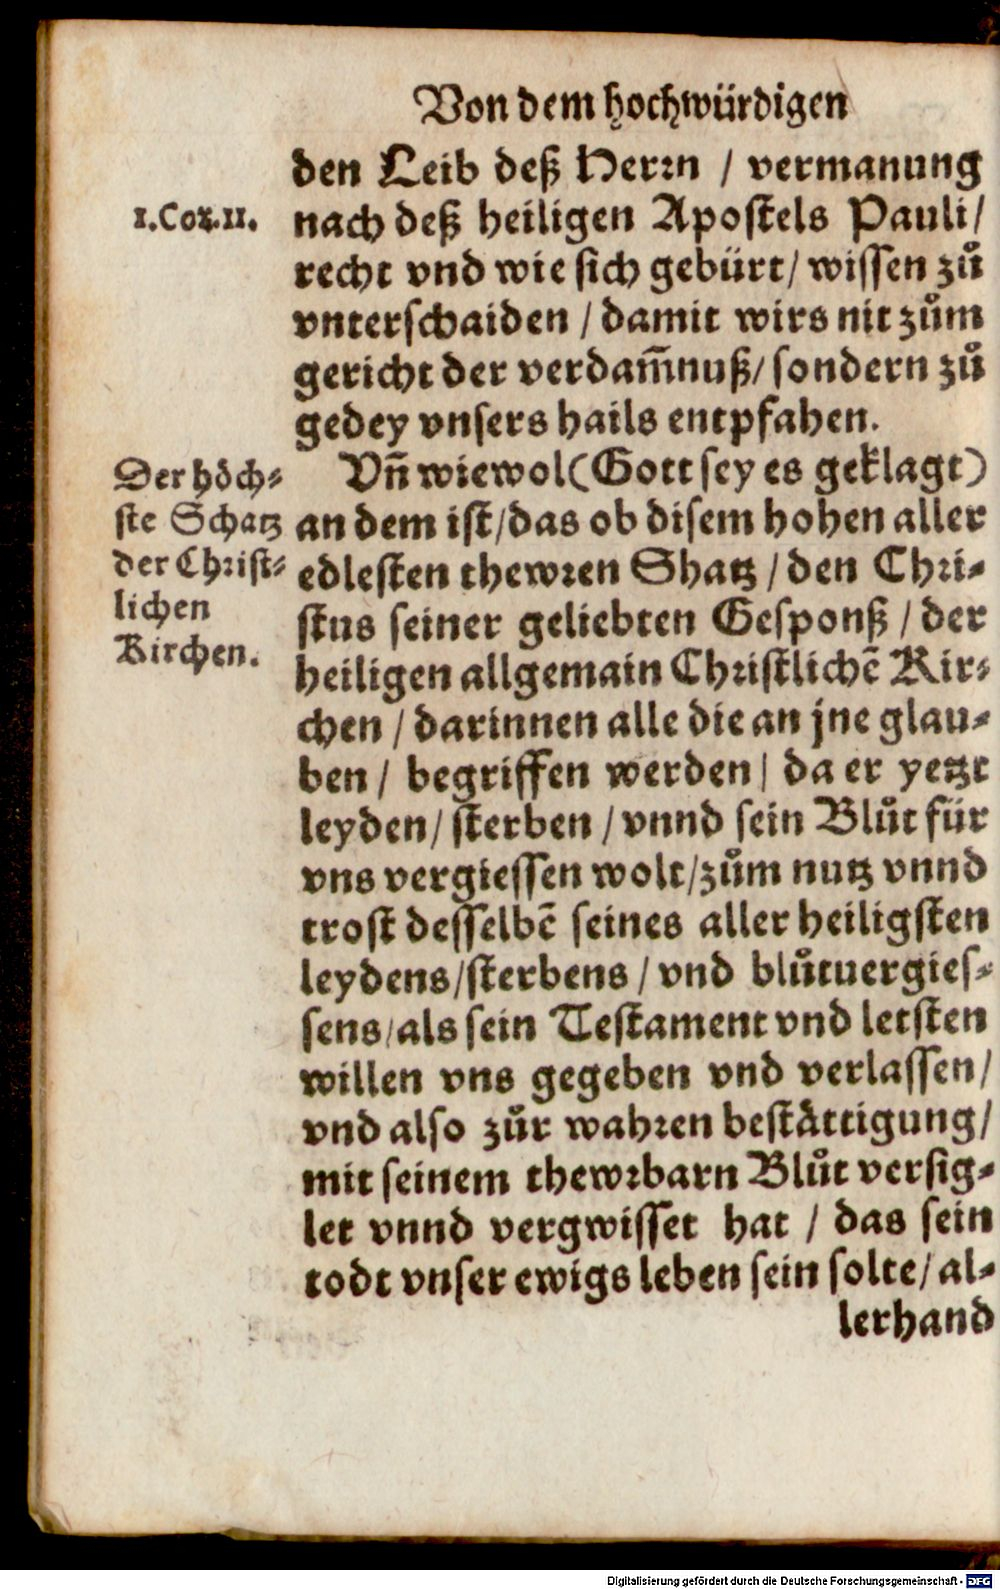 Von dem hochwürdigen
den Leib deß Herrn / vermanung
1.Cor.11.
nach deß heiligen Apostels Pauli/
recht vnd wie sich gebürt/ wissen zů
vnterschaiden / damit wirs nit zům
gericht der verdam̄nuß/ sondern zů
gedey vnsers hails entpfahen.
Der höch⸗
ste Schatz
der Christ⸗
lichen
Kirchen.
Vn̄ wiewol(Gott sey es geklagt)
an dem ist/das ob disem hohen aller
edlesten thewren Shatz / den Chri⸗
stus seiner geliebten Gesponß / der
heiligen allgemain Christlichē Kir⸗
chen / darinnen alle die an jne glau⸗
ben / begriffen werden / da er yetzt
leyden/ sterben / vnnd sein Blůt für
vns vergiessen wolt/zům nutz vnnd
trost desselbē seines aller heiligsten
leydens/sterbens / vnd blůtuergies⸗
sens/als sein Testament vnd letsten
willen vns gegeben vnd verlassen/
vnd also zůr wahren bestättigung/
mit seinem thewrbarn Blůt versig⸗
let vnnd vergwisset hat / das sein
todt vnser ewigs leben sein solte/ al⸗
lerhand
Digitalisierung gefördert durch die Deutsche Forschungsgemeinschaft - DFG